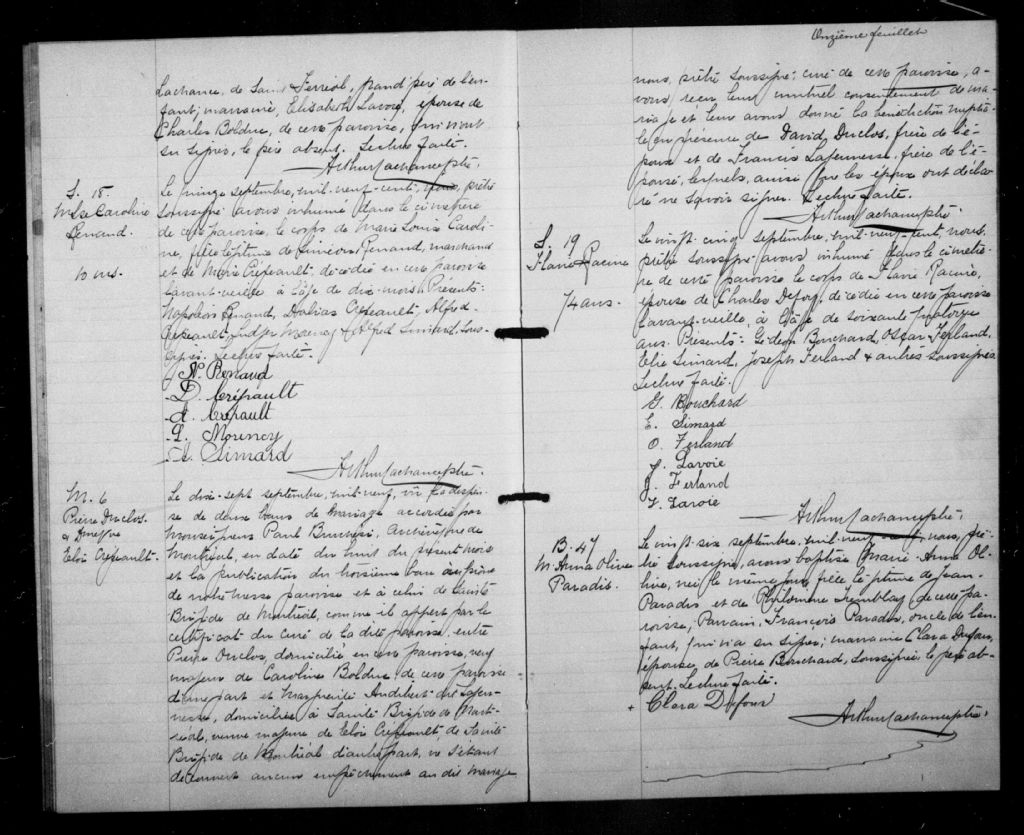 Onzième feuillet
Lachance, de Saint Ferréol, grand père de l'en-
fant, marraine, Elisabeth Lavoie, épouse de
Charles Bolduc, de cette paroisse, qui n'ont
su signer, le père absent. Lecture faite.
Arthur Lachance, ptre.
S. 18.
M. Lse Caroline
Renaud.
10 ms.
Le vingt septembre, mil-neuf-cent, nous, prêtre
soussigné avons inhumé dans le cimetière
de cette paroisse, le corps de Marie Louise Caroli-
ne, fille légitime de Renaud, marchand
et de Marie Crépeault, décédée en cette paroisse
l'avant-veille à l'âge de dix mois. Présents:
Napoléon Renaud, Crépeault, Alfred
Crépeault, Morency & Alfred Simard, sous-
signés. Lecture faite.
N. Renaud
D. Crépault
A. Crépault
Morency
A. Simard
Arthur Lachance, ptre.
M. 6
Pierre Duclos.
&
Eloi Crépeault.
Le dix-sept septembre, mil-neuf, vu la dispen-
se de deux bans de mariage accordée par
Monseigneur Paul Bruchési, archevêque de
Montréal, en date du huit du présent mois
et la publication du troisième ban au prône
de notre messe paroisse et à celui de Sainte
Brigide de Montréal, comme il appert par le
certificat du curé de la dite paroisse, entre
Pierre Duclos, domicilié en cette paroisse, veuf
majeur de Caroline Bolduc de cette paroisse
d'une part et Marguerite Audibert dit Lajeu-
nesse, domiciliée à Sainte Brigide de Mont-
réal, veuve majeure de Eloi Crépeault, de Sainte
Brigide de Montréal d'autre part, ne s'étant
découvert aucun empêchement au dit mariage
nous, prêtre soussigné, curé de cette paroisse, a-
vons reçu leur mutuel consentement de ma-
riage et leur avons donné la bénédiction nuptia-
le en présence de David Duclos, frère de l'é-
poux et de Francis Lajeunesse, frère de l'é-
pouse, lesquels, ainsi que les époux ont décla-
ré ne savoir signer. Lecture faite.
Arthur Lachance, ptre.
S. 19
Flavie Racine
74 ans.
Le vingt cinq septembre, mil-neuf-cent, nous,
prêtre soussigné avons inhumé dans le cimetiè-
re de cette paroisse le corps de Flavie Racine,
épouse de Charles, décédée en cette paroisse
l'avant-veille, à l'âge de soixante quatorze
ans. Présents: Gédéon Bouchard, Oscar Ferland,
Elie Simard, Joseph Ferland & autres soussignés
Lecture faite.
G. Bouchard
E. Simard
O. Ferland
J. Lavoie
J. Ferland
Lavoie
Arthur Lachance, ptre.
B. 47
M. Anna Olivine
Paradis.
Le vingt-six septembre, mil-neuf-cent, nous, prê-
tre soussigné, avons baptisé Marie Anna Oli-
vine, née le même jour, fille légitime de Jean
Paradis et de Philomène Tremblay de cette pa-
roisse, Parrain, François Paradis, oncle de l'en-
fant, qui n'a su signer; marraine Clara Dufour,
épouse de Pierre Bouchard, soussignée, le père ab-
sent. Lecture faite.
+ Clara Dufour
Arthur Lachance, ptre.